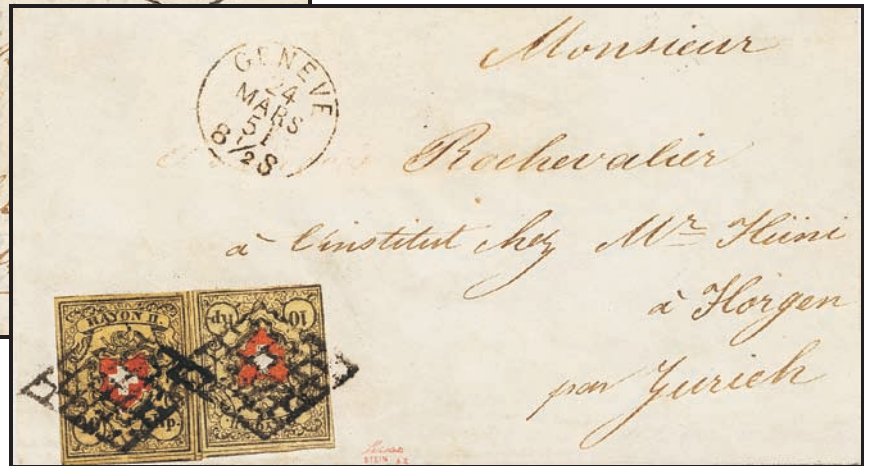 GENÈVE
24
MARS
51
8 ½ S
Monsieur
Rochevalier
à l'institut chez Mr Hüni
à Horgen
par Zurich
RAYON II.
10 Rp.
Rp.
STEIN A.R.